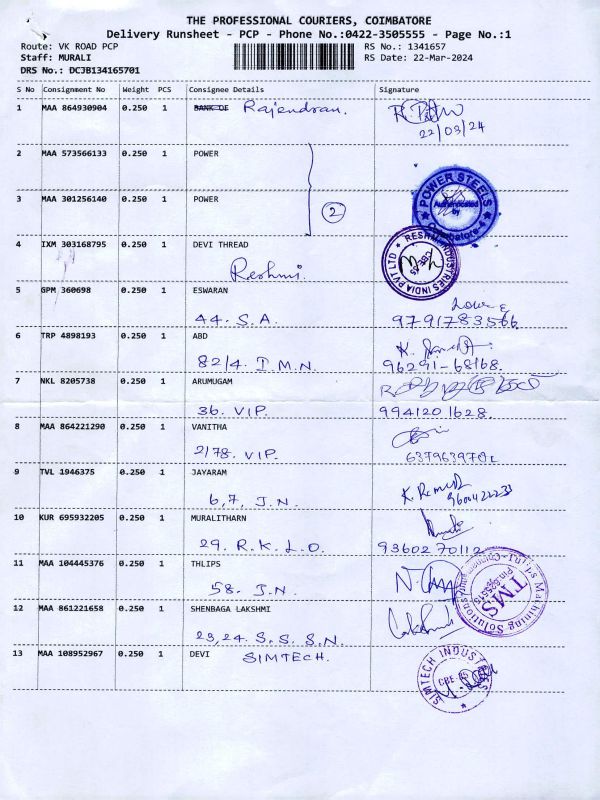 THE PROFESSIONAL COURIERS, COIMBATORE
Delivery Runsheet - PCP - Phone No.:0422-3505555 - Page No.:1
Route: VK ROAD PCP
RS No.: 1341657
Staff: MURALI
RS Date: 22-Mar-2024
DRS No.: DCJB134165701
S No Consignment No Weight PCS Consignee Details Signature
1 MAA 864930904 0.250 1 BANK OF Rajendran.
22/03/24
2 MAA 573566133 0.250 1 POWER
POWER STEELS
Authenticated by
Coimbatore-4
3 MAA 301256140 0.250 1 POWER
2
4 IXM 303168795 0.250 1 DEVI THREAD
Reshmi.
RESHMI INDUSTRIES INDIA PVT LTD
5 GPM 360698 0.250 1 ESWARAN
44. S.A. 9791783566
6 TRP 4898193 0.250 1 ABD
82/4. I.M.N. 96291-68168.
7 NKL 8205738 0.250 1 ARUMUGAM
36. VIP. 9941201628.
8 MAA 864221290 0.250 1 VANITHA
2/78. VIP.
9 TVL 1946375 0.250 1 JAYARAM
6,7, J.N.
10 KUR 695932205 0.250 1 MURALITHARN
29. R.K.L.O. 9360270112
11 MAA 104445376 0.250 1 THLIPS
58. J.N.
TMS
Machining Solutions
12 MAA 861221658 0.250 1 SHENBAGA LAKSHMI
23,24. S.S.S.N.
13 MAA 108952967 0.250 1 DEVI SIMTECH.
SIMTECH INDUSTRIES